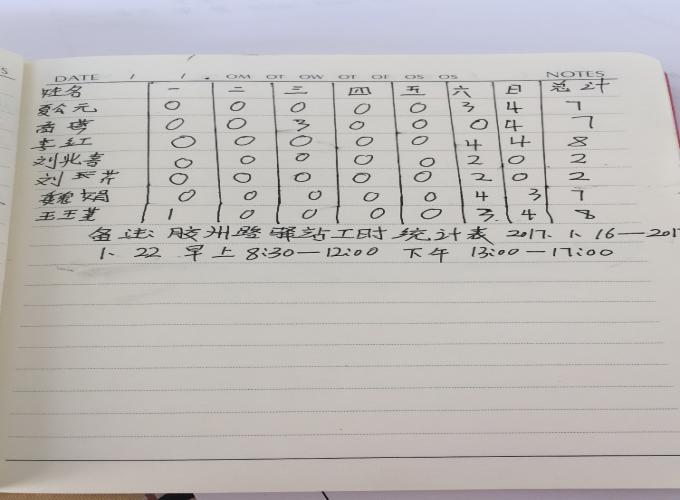 S
DATE / / . OM OT OW OT OF OS OS NOTES
姓名 一 二 三 四 五 六 日 总计
夏公元 0 0 0 0 0 3 4 7
0 0 3 0 0 0 4 7
李红 0 0 0 0 0 4 4 8
刘兆春 0 0 0 0 0 2 0 2
刘芹 0 0 0 0 0 2 0 2
魏娟 0 0 0 0 0 4 3 7
王玉堇 1 0 0 0 0 3 4 8
备注: 胶州路驿站工时统计表 2017. 1. 16—2017
1. 22 早上 8:30—12:00 下午 13:00—17:00